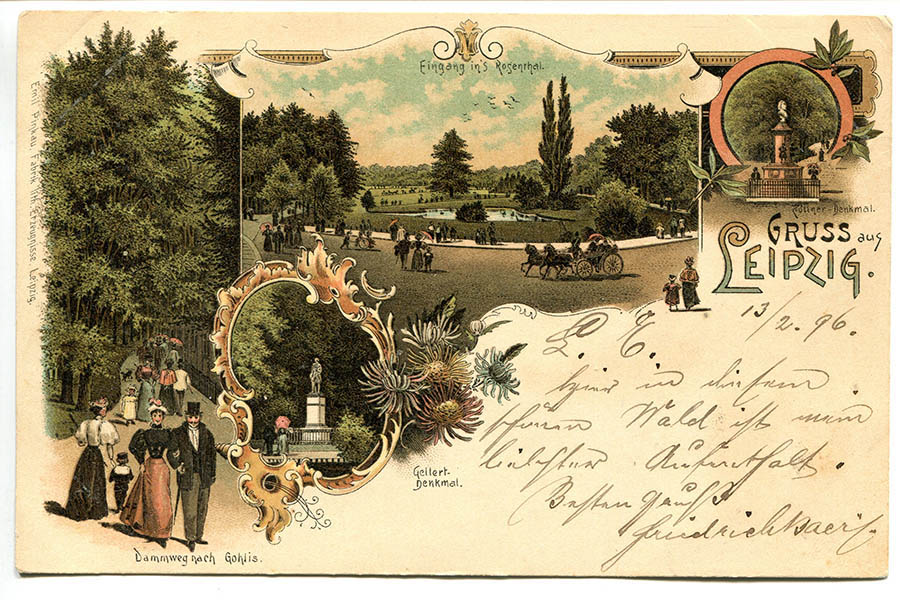 Eingang in's Rosenthal.
Zöllner-Denkmal.
GRUSS aus
LEIPZIG.
Emil Pinkau, Fabr. lith. Erzeugnisse, Leipzig.
Gellert-
Denkmal.
Dammweg nach Gohlis.
13/2. 96.
L. E.
Hier in diesem
schönen Wald ist mein
liebster Aufenthalt.
Besten Gruß
Friedrich